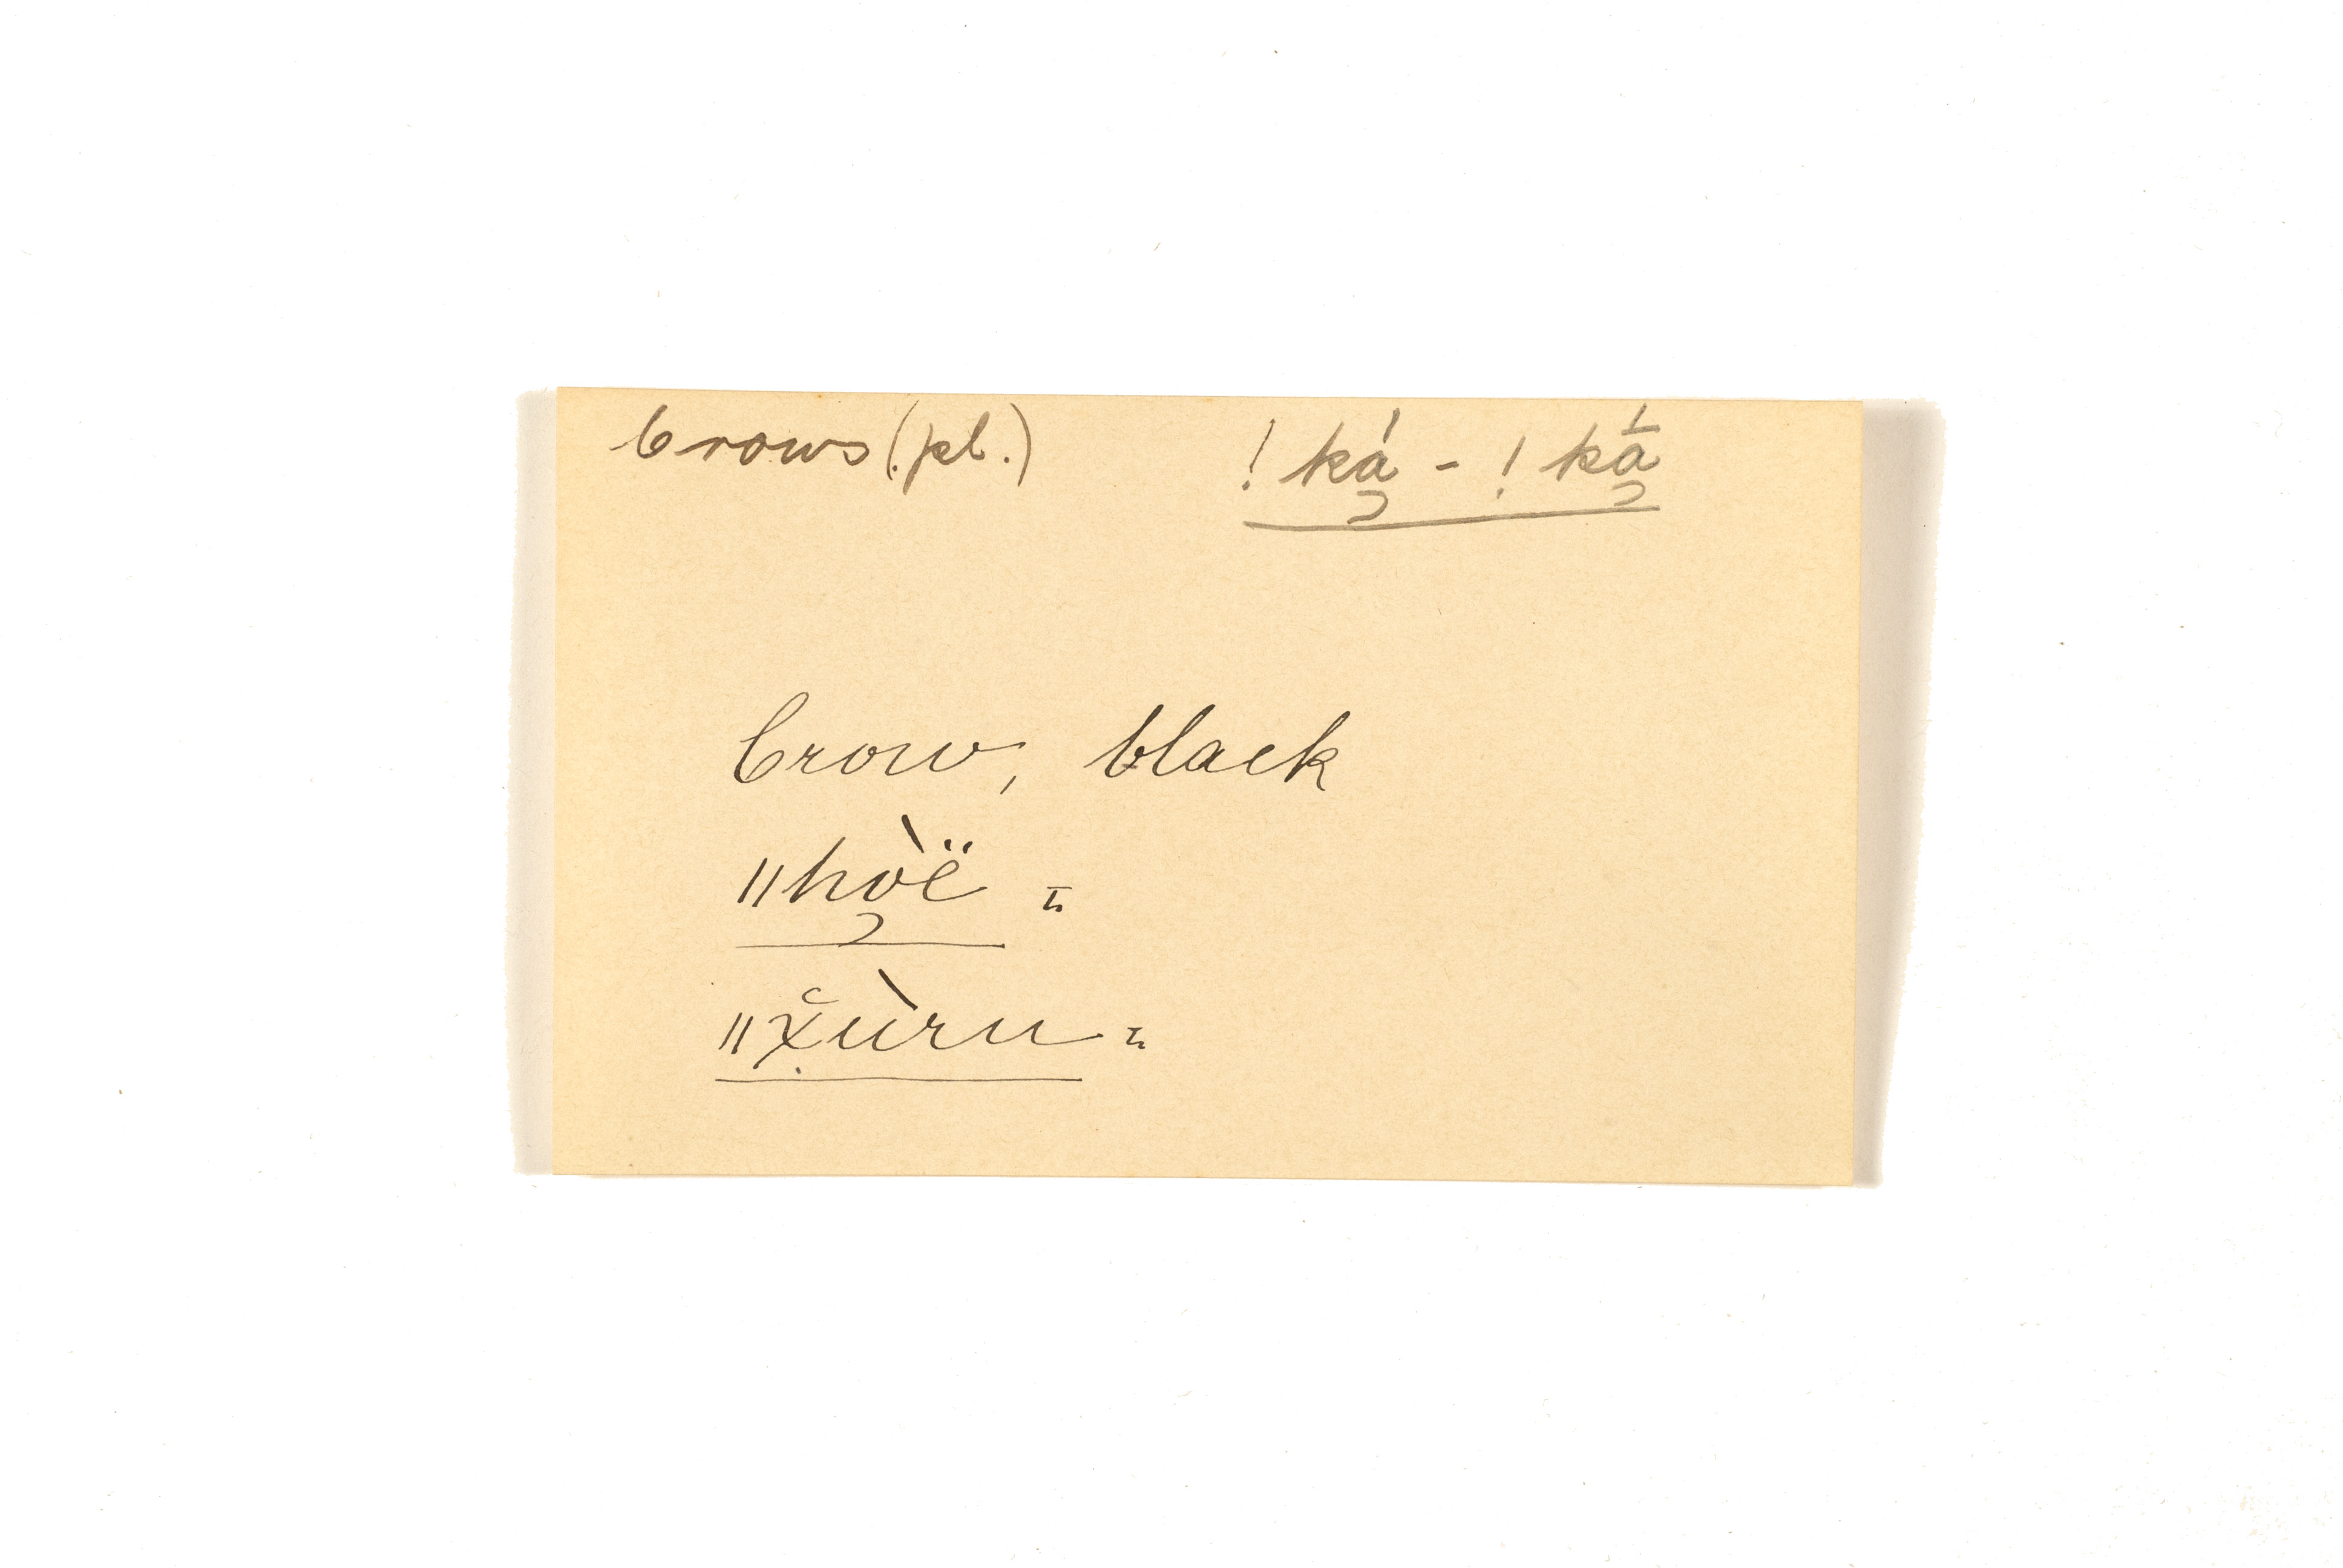 Crows (pl.) !ká̡ - !ká̡̱
Crow, black
ǁhò̡ë ₌
ǁx̣̆ùru ₌